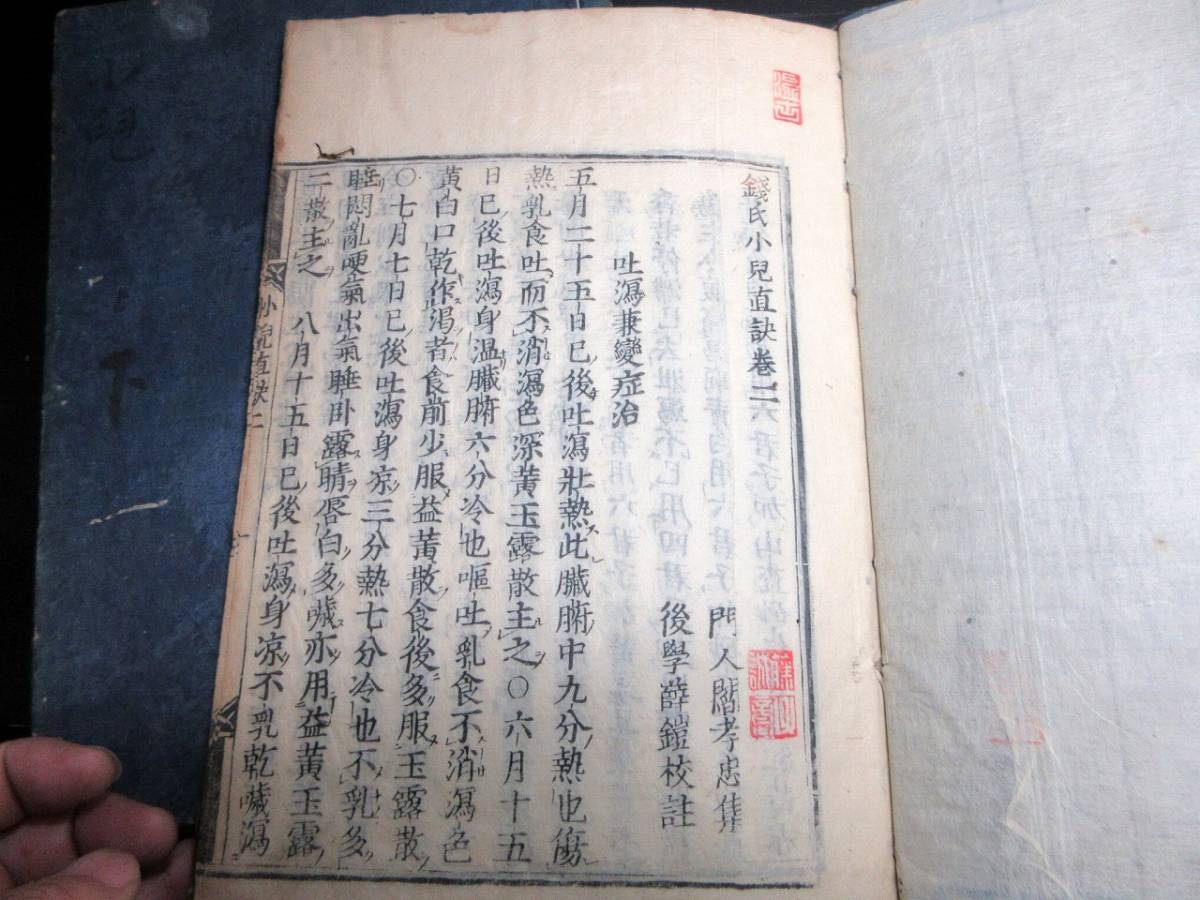 錢氏小兒直訣卷二
門人閻孝忠集
後學薛鎧校註
吐瀉兼變症治
五月二十五日已後吐瀉壯熱此臟腑中九分熱也傷
熱乳食吐而不消瀉色深黃玉露散主之○六月十五
日已後吐瀉身温臟腑六分冷也嘔吐乳食不消瀉色
黃白口乾作渴者食前少服益黃散食後多服玉露散
○七月七日已後吐瀉身凉三分熱七分冷也不乳多
睡悶亂哽氣出氣睡卧露睛唇白多噦亦用益黃玉露
二散主之 八月十五日已後吐瀉身凉不乳乾噦瀉
小兒直訣二
下